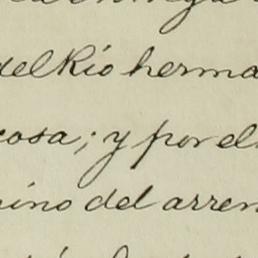 del Río herma
cosa; y por el
ino del arren